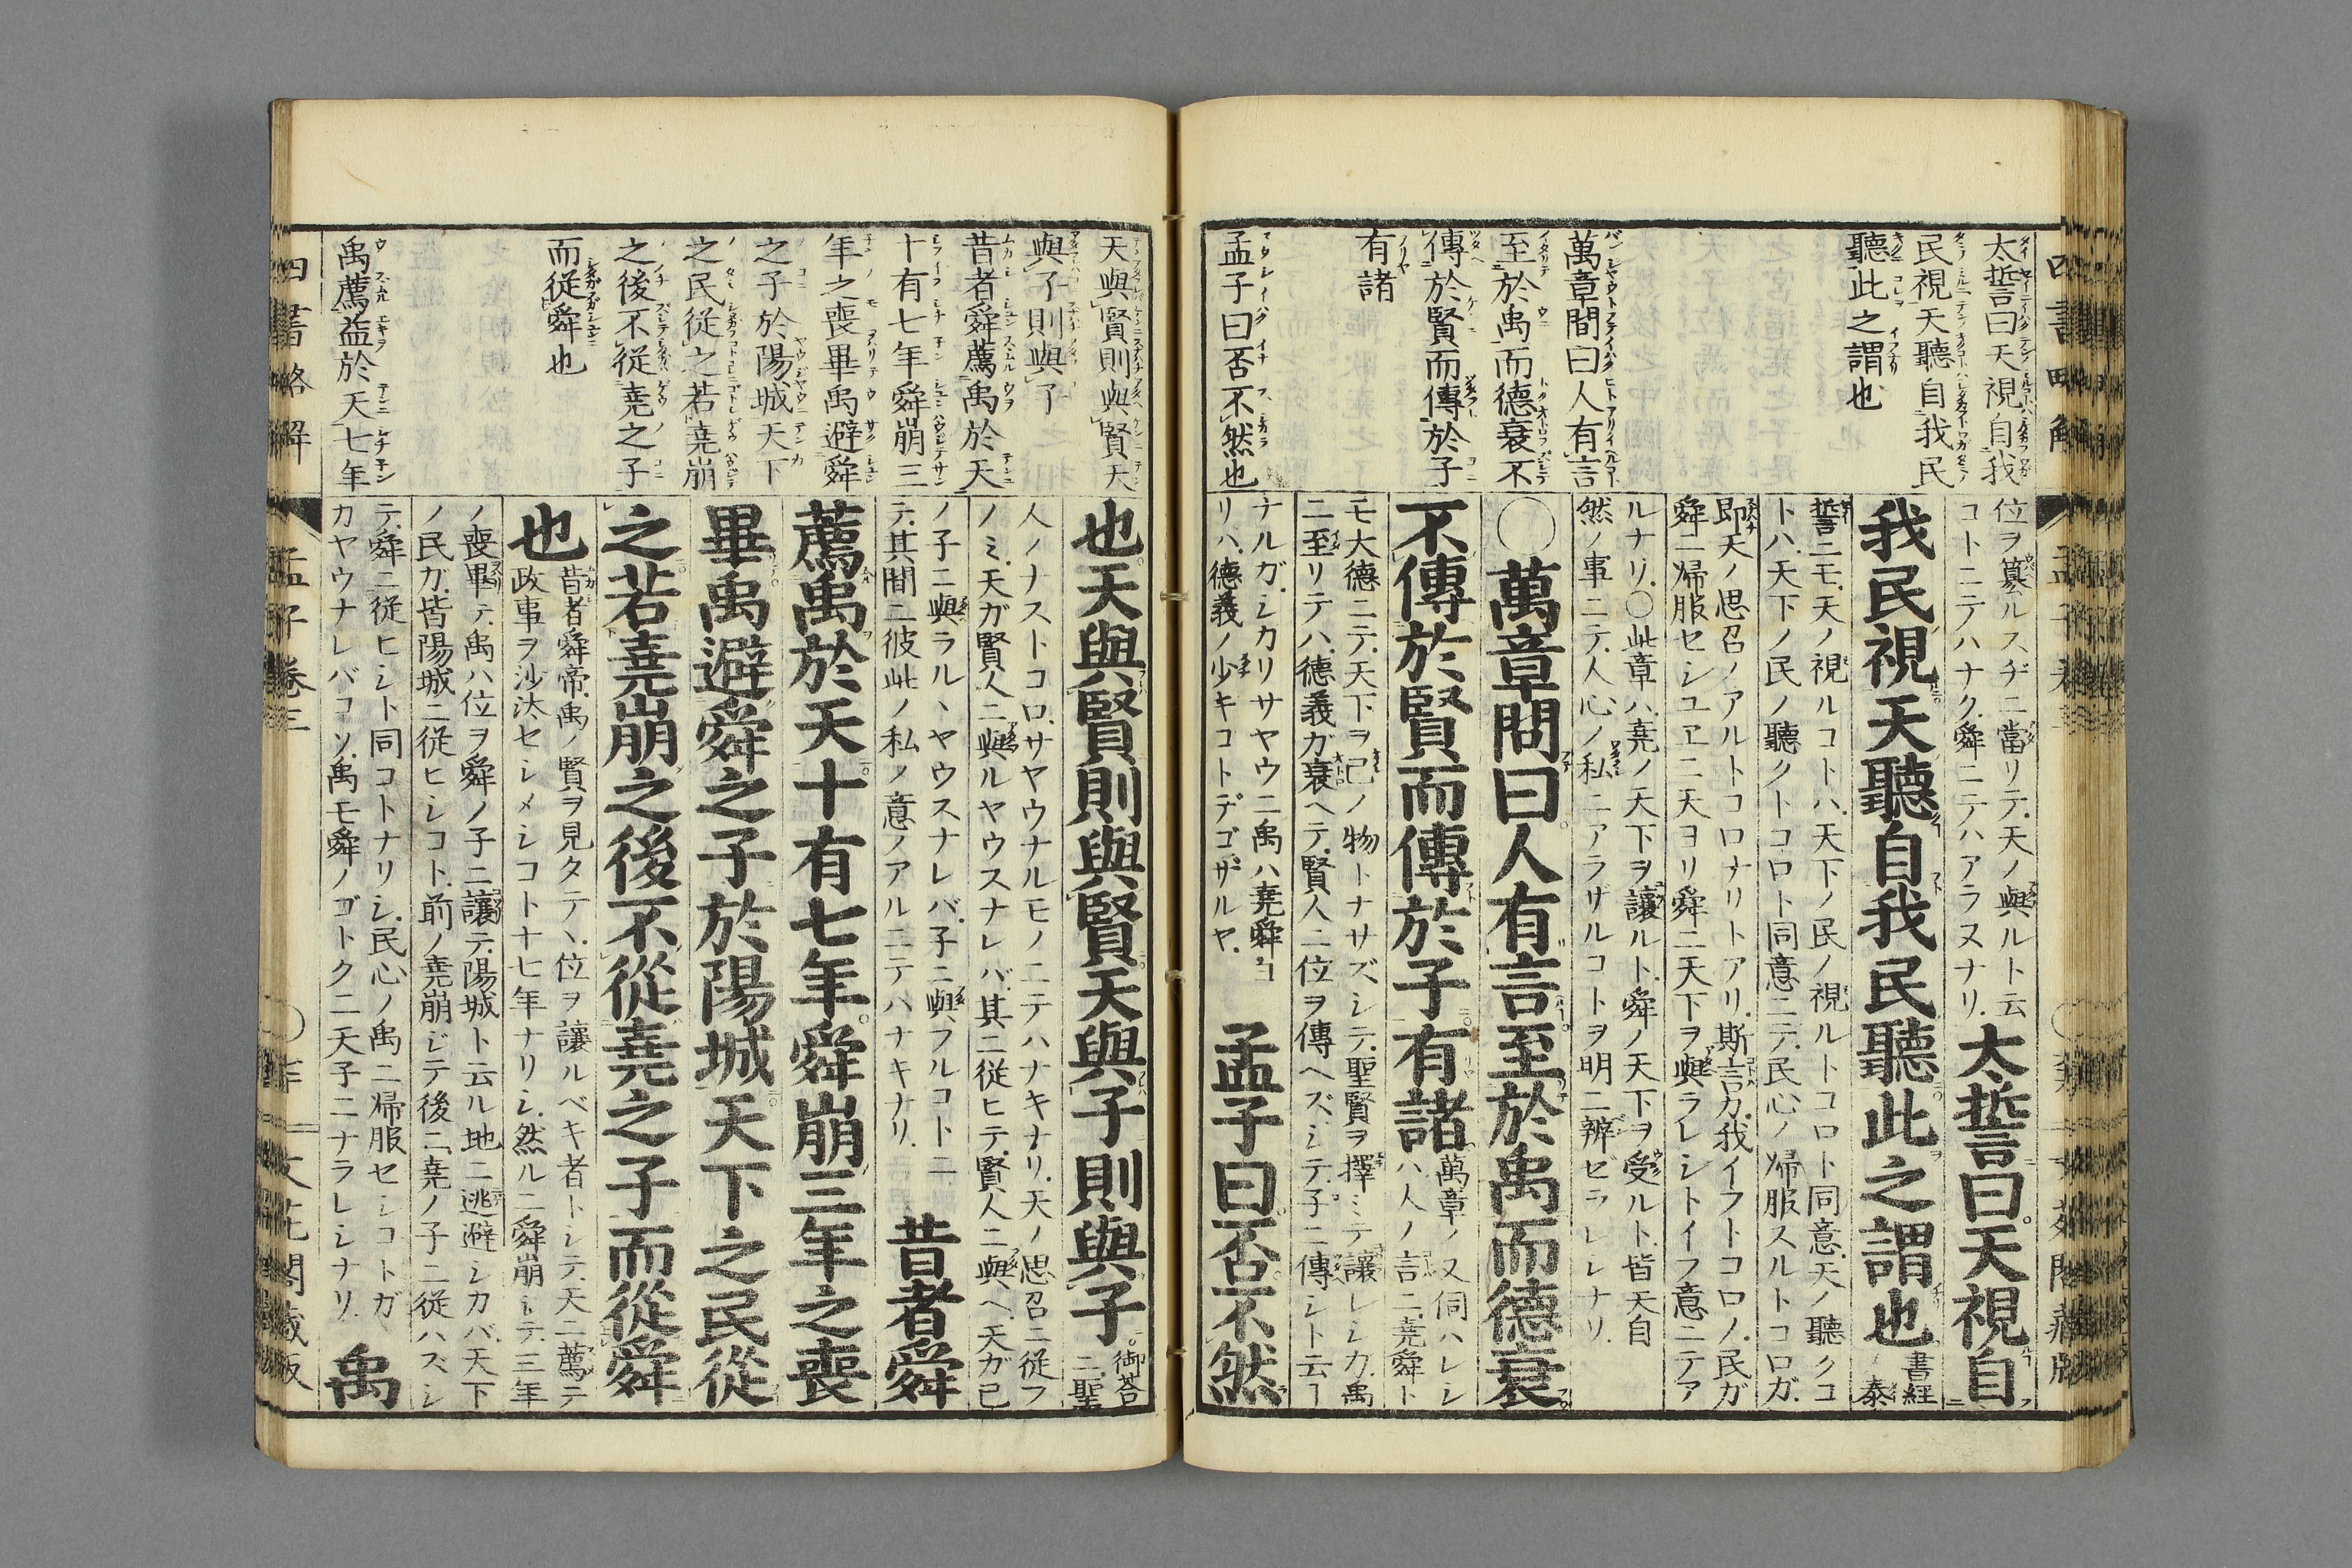 太誓曰天視自我
民視天聽自我民
聽此之謂也
萬章問曰人有言
至於禹而德衰不
傳於賢而傳於子
有諸
孟子曰否不然也
位ヲ簒ルスヂニ當リテ天ノ與ルト云
コトニテハナク舜ニテハアラヌナリ
太誓曰天視自
我民視天聽自我民聽此之謂也
書経
泰
誓ニモ天ノ視ルコトハ天下ノ民ノ視ルトコロト同意天ノ聽クコ
トハ天下ノ民ノ聽クトコロト同意ニテ民心ノ帰服スルトコロガ
即天ノ思召ノアルトコロナリトアリ斯言ガ我イフトコロノ民ガ
舜ニ帰服セシユヱニ天ヨリ舜ニ天下ヲ與ラレシトイフ意ニテア
ルナリ〇此章ハ堯ノ天下ヲ讓ルト舜ノ天下ヲ受ルト皆天自
然ノ事ニテ人心ノ私ニアラザルコトヲ明ニ辨ゼラレシナリ
〇萬章問曰人有言至於禹而德衰
不傳於賢而傳於子有諸
萬章ノ又伺ハレシ
ハ人ノ言ニ堯舜ト
モ大德ニテ天下ヲ己ノ物トナサズシテ聖賢ヲ擇ミテ讓レシカ禹
ニ至リテハ德義ガ衰ヘテ賢人ニ位ヲ傳ヘズシテ子ニ傳シト云ー
ナルガシカリサヤウニ禹ハ堯舜ヨ
リハ德義ノ少キコトデゴザルヤ
孟子曰否不然
天與賢則與賢天
與子則與子
昔者舜薦禹於天
十有七年舜崩三
年之喪畢禹避舜
之子於陽城天下
之民從之若堯崩
之後不從堯之子
而從舜也
禹薦益於天七年
也天與賢則與賢天與子則與子
御荅
ニ聖
人ノナストコロサヤウナルモノニテハナキナリ天ノ思召ニ従フ
ノミ天ガ賢人ニ與ルヤウスナレバ其ニ従ヒテ賢人ニ與ヘ天カ己
ノ子ニ與ラルヽヤウスナレバ子ニ與フルコトニ
テ其間ニ彼此ノ私ノ意ノアルニテハナキナリ
昔者舜
薦禹於天十有七年舜崩三年之喪
畢禹避舜之子於陽城天下之民從
之若堯崩之後不從堯之子而從舜
也
昔者舜帝禹ノ賢ヲ見タテヽ位ヲ讓ルベキ者トシテ天ニ薦テ
政事ヲ沙汰セシメシコト十七年ナリシ然ルニ舜崩シテ三年
ノ喪畢テ禹ハ位ヲ舜ノ子ニ讓テ陽城ト云ル地ニ逃避シカバ天下
ノ民ガ皆陽城ニ従ヒシコト前ノ堯崩ジテ後ニ堯ノ子ニ従ハズシ
テ舜ニ従ヒシト同コトナリシ民心ノ禹ニ帰服セシコトガ
カヤウナレバコソ禹モ舜ノゴトク二天子ニナラレシナリ
禹
四書略解
孟子卷三
文花閣藏版